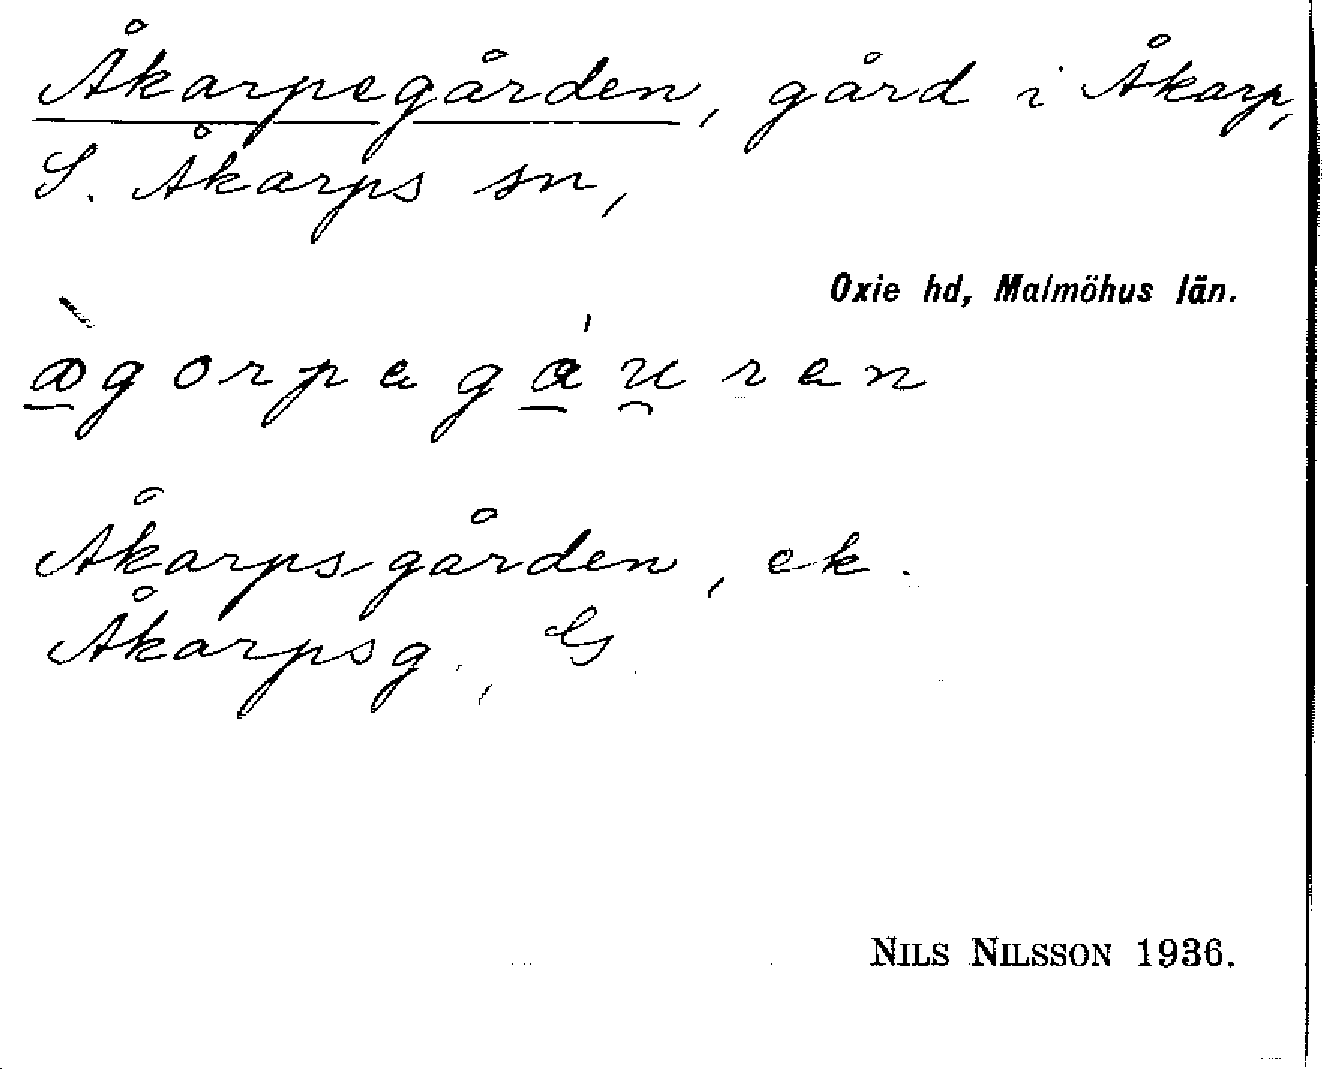 Åkarpegården, gård i Åkarp,
S. Åkarps sn,
Oxie hd, Malmöhus län.
ꜵ̠̀gorpegá̠u̯ren
Åkarpsgården, ek.
Åkarpsg., G
NILS NILSSON 1936.